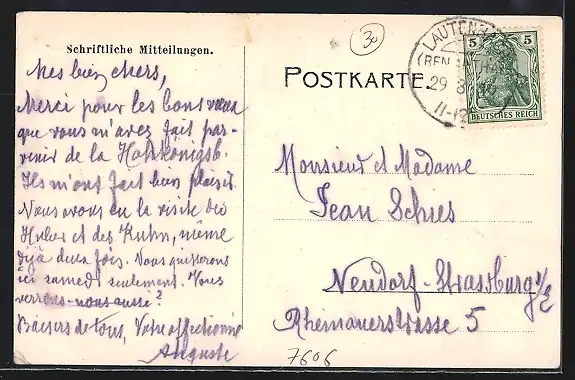 Schriftliche Mitteilungen.
Mes bien chers,
Merci pour les bons vœux
que vous m'avez fait par-
venir de la Hohkönigsb.
Ils m'ont fait bien plaisir.
Nous avons eu la visite des
Huber et des Kuhn, même
déjà deux fois. Nous quitterons
ici samedi seulement. Vous
verrons-nous aussi?
Baisers de tous, Votre affectionné
Auguste
30
POSTKARTE.
LAUTENB
29 8
11-12
5 5
DEUTSCHES REICH
Monsieur et Madame
Jean Schies
Neudorf-Strassburg i/E
Rheinauerstrasse 5
7606